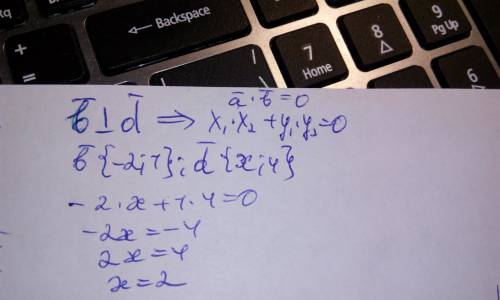 Backspace
+
=
7
Home
8
9
Pg Up
6
a̅·b̅=0
b̅⊥d̅ ⟹ x₁·x₂+y₁·y₂=0
b̅{-2;1}; d̅{x;4}
-2·x+1·4=0
-2x=-4
2x=4
x=2